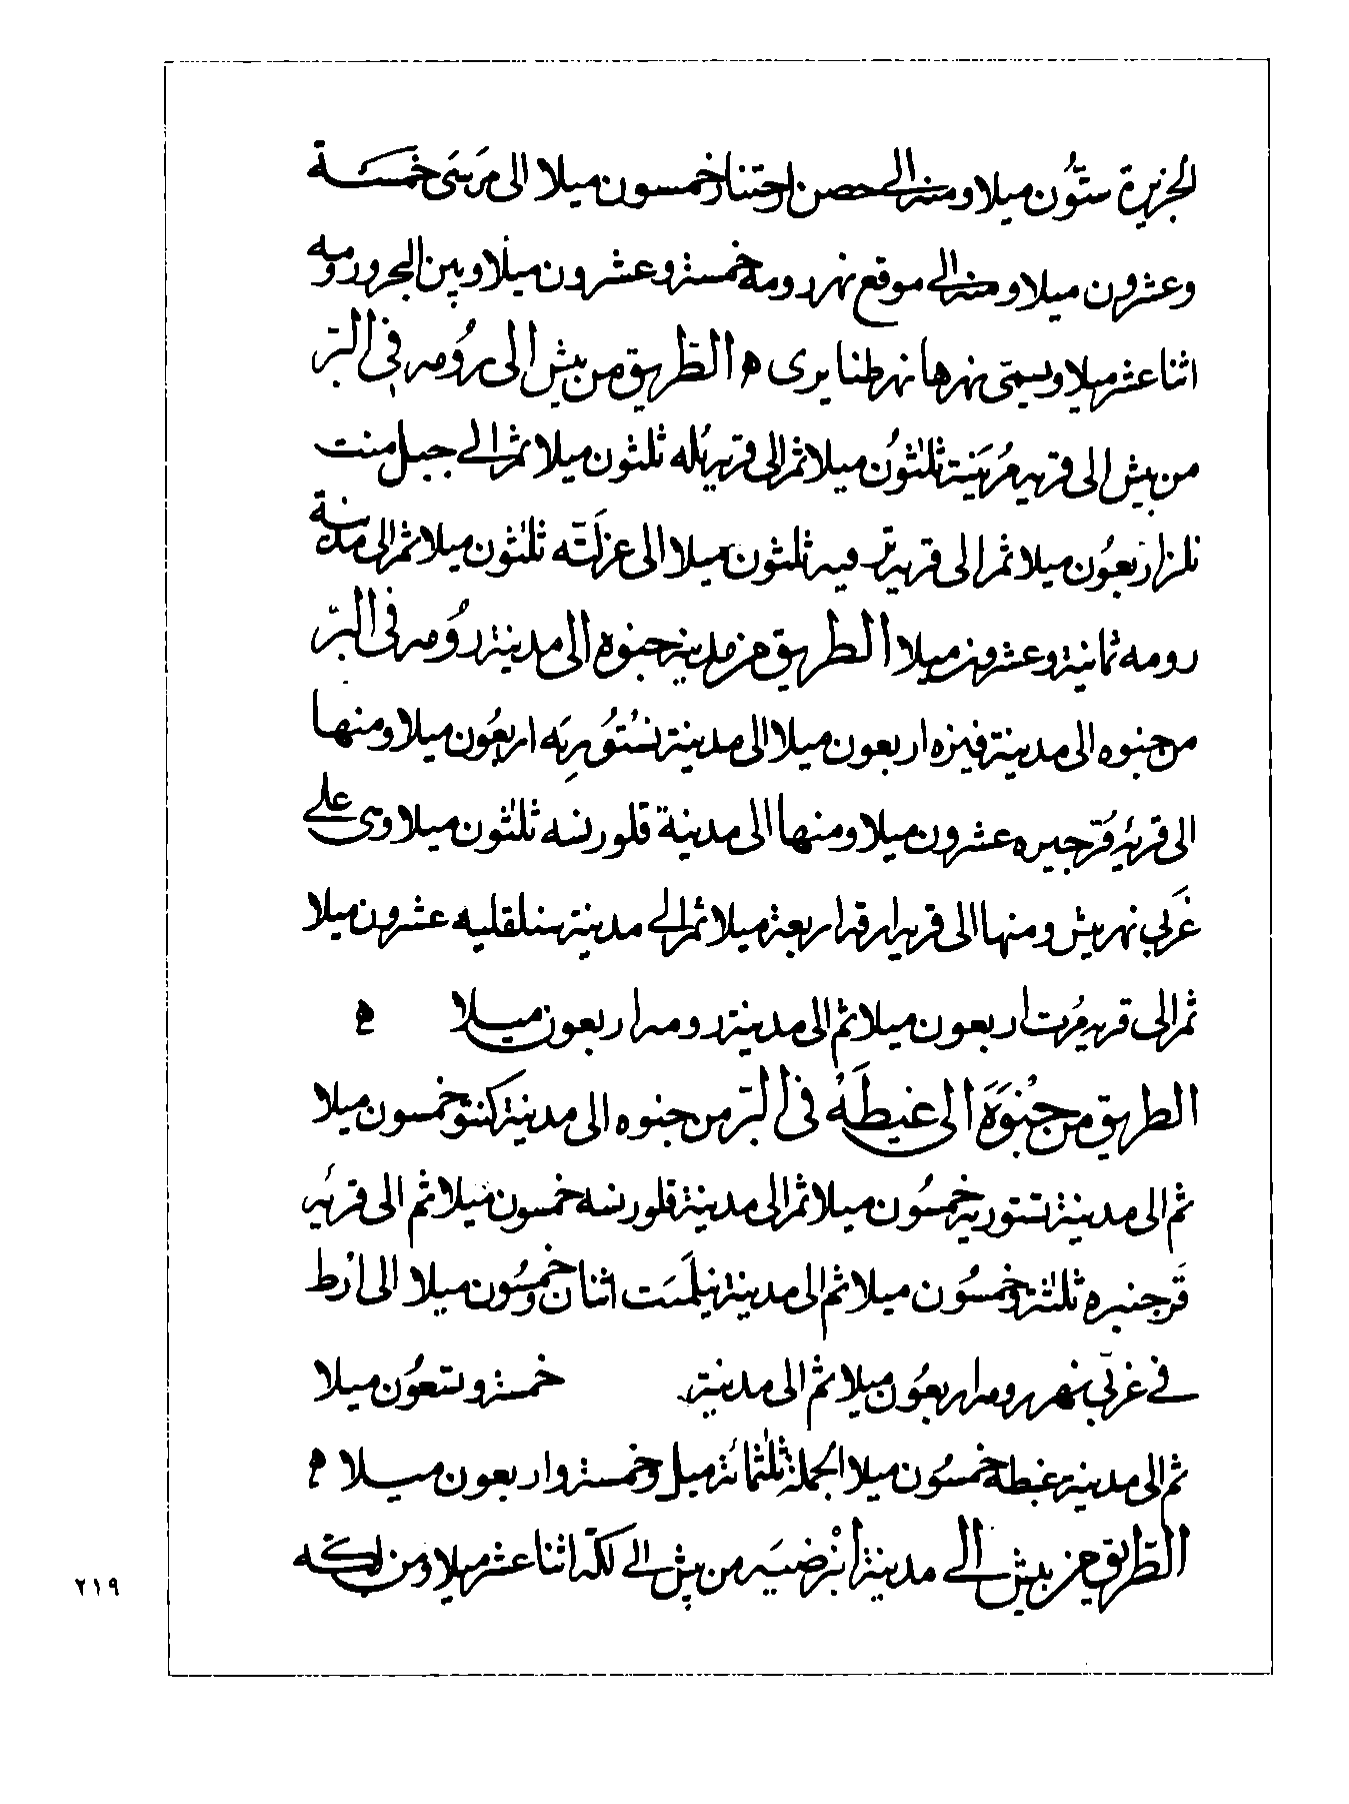 الجزيرة ستون ميلا ومنه الى حصن احتنا خمسون ميلا الى مرسى خمسة
وعشرون ميلا ومنه الى موقع نهر رومه خمسة وعشرون ميلا وبين البحر ورومه
اثنا عشر ميلا ويسمى نهرها نهر طنابرى ه الطريق من بيش الى رومه في البر
من بيش الى قريه مرينة ثلثون ميلا ثم الى قريه بله ثلثون ميلا ثم الى جبل منت
اربعون ميلا ثم الى قريه ثلثون ميلا الى عزلته ثلثون ميلا ثم الى مدينة
رومه ثمانية وعشرون ميلا الطريق من مدينة جنوه الى مدينة رومه في البر
من جنوه الى مدينة فيزه اربعون ميلا الى مدينة نستوريه اربعون ميلا ومنها
الى قريه قرجيره عشرون ميلا ومنها الى مدينة قلورنسه ثلثون ميلا وهي على
غربي نهر بيش ومنها الى قريه اربعة ميلا ثم الى مدينة سنلقليه عشرون ميلا
ثم الى قريه مرت اربعون ميلا ثم الى مدينة رومه اربعون ميلا ه
الطريق من جنوة الى غيطه في البر من جنوه الى مدينة كنتو خمسون ميلا
ثم الى مدينة نستوريه خمسون ميلا ثم الى مدينة قلورنسه خمسون ميلا ثم الى قريه
قرجنبره ثلثة وخمسون ميلا ثم الى مدينة نيلمست اثنان وخمسون ميلا الى ارط
في غربي نهر رومه اربعون ميلا ثم الى مدينة خمسة وستعون ميلا
ثم الى مدينة غيطه خمسون ميلا الجملة ثلثمائة ميل وخمسة واربعون ميلا ه
الطريق من بيش الى مدينة انبرضيه من بيش الى لكه اثنا عشر ميلا ومن لكه
٢١٩